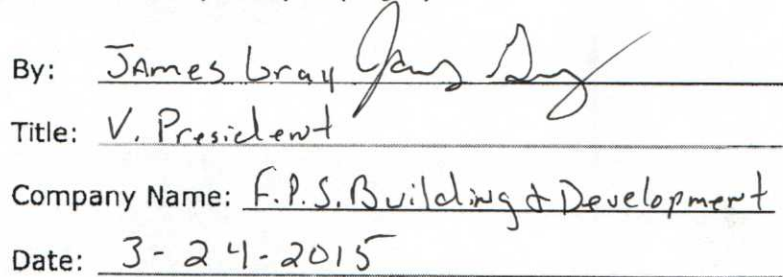 By: James Gray
Title: V. President
Company Name: F.P.S. Building & Development
Date: 3-24-2015